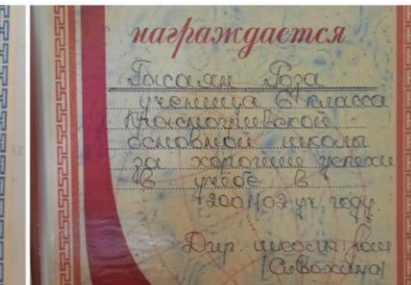 награждается
Роза
ученица 6 класса
основной школы
за хорошие успехи
в учёбе в
2001/02 уч. году
Дир. школы: